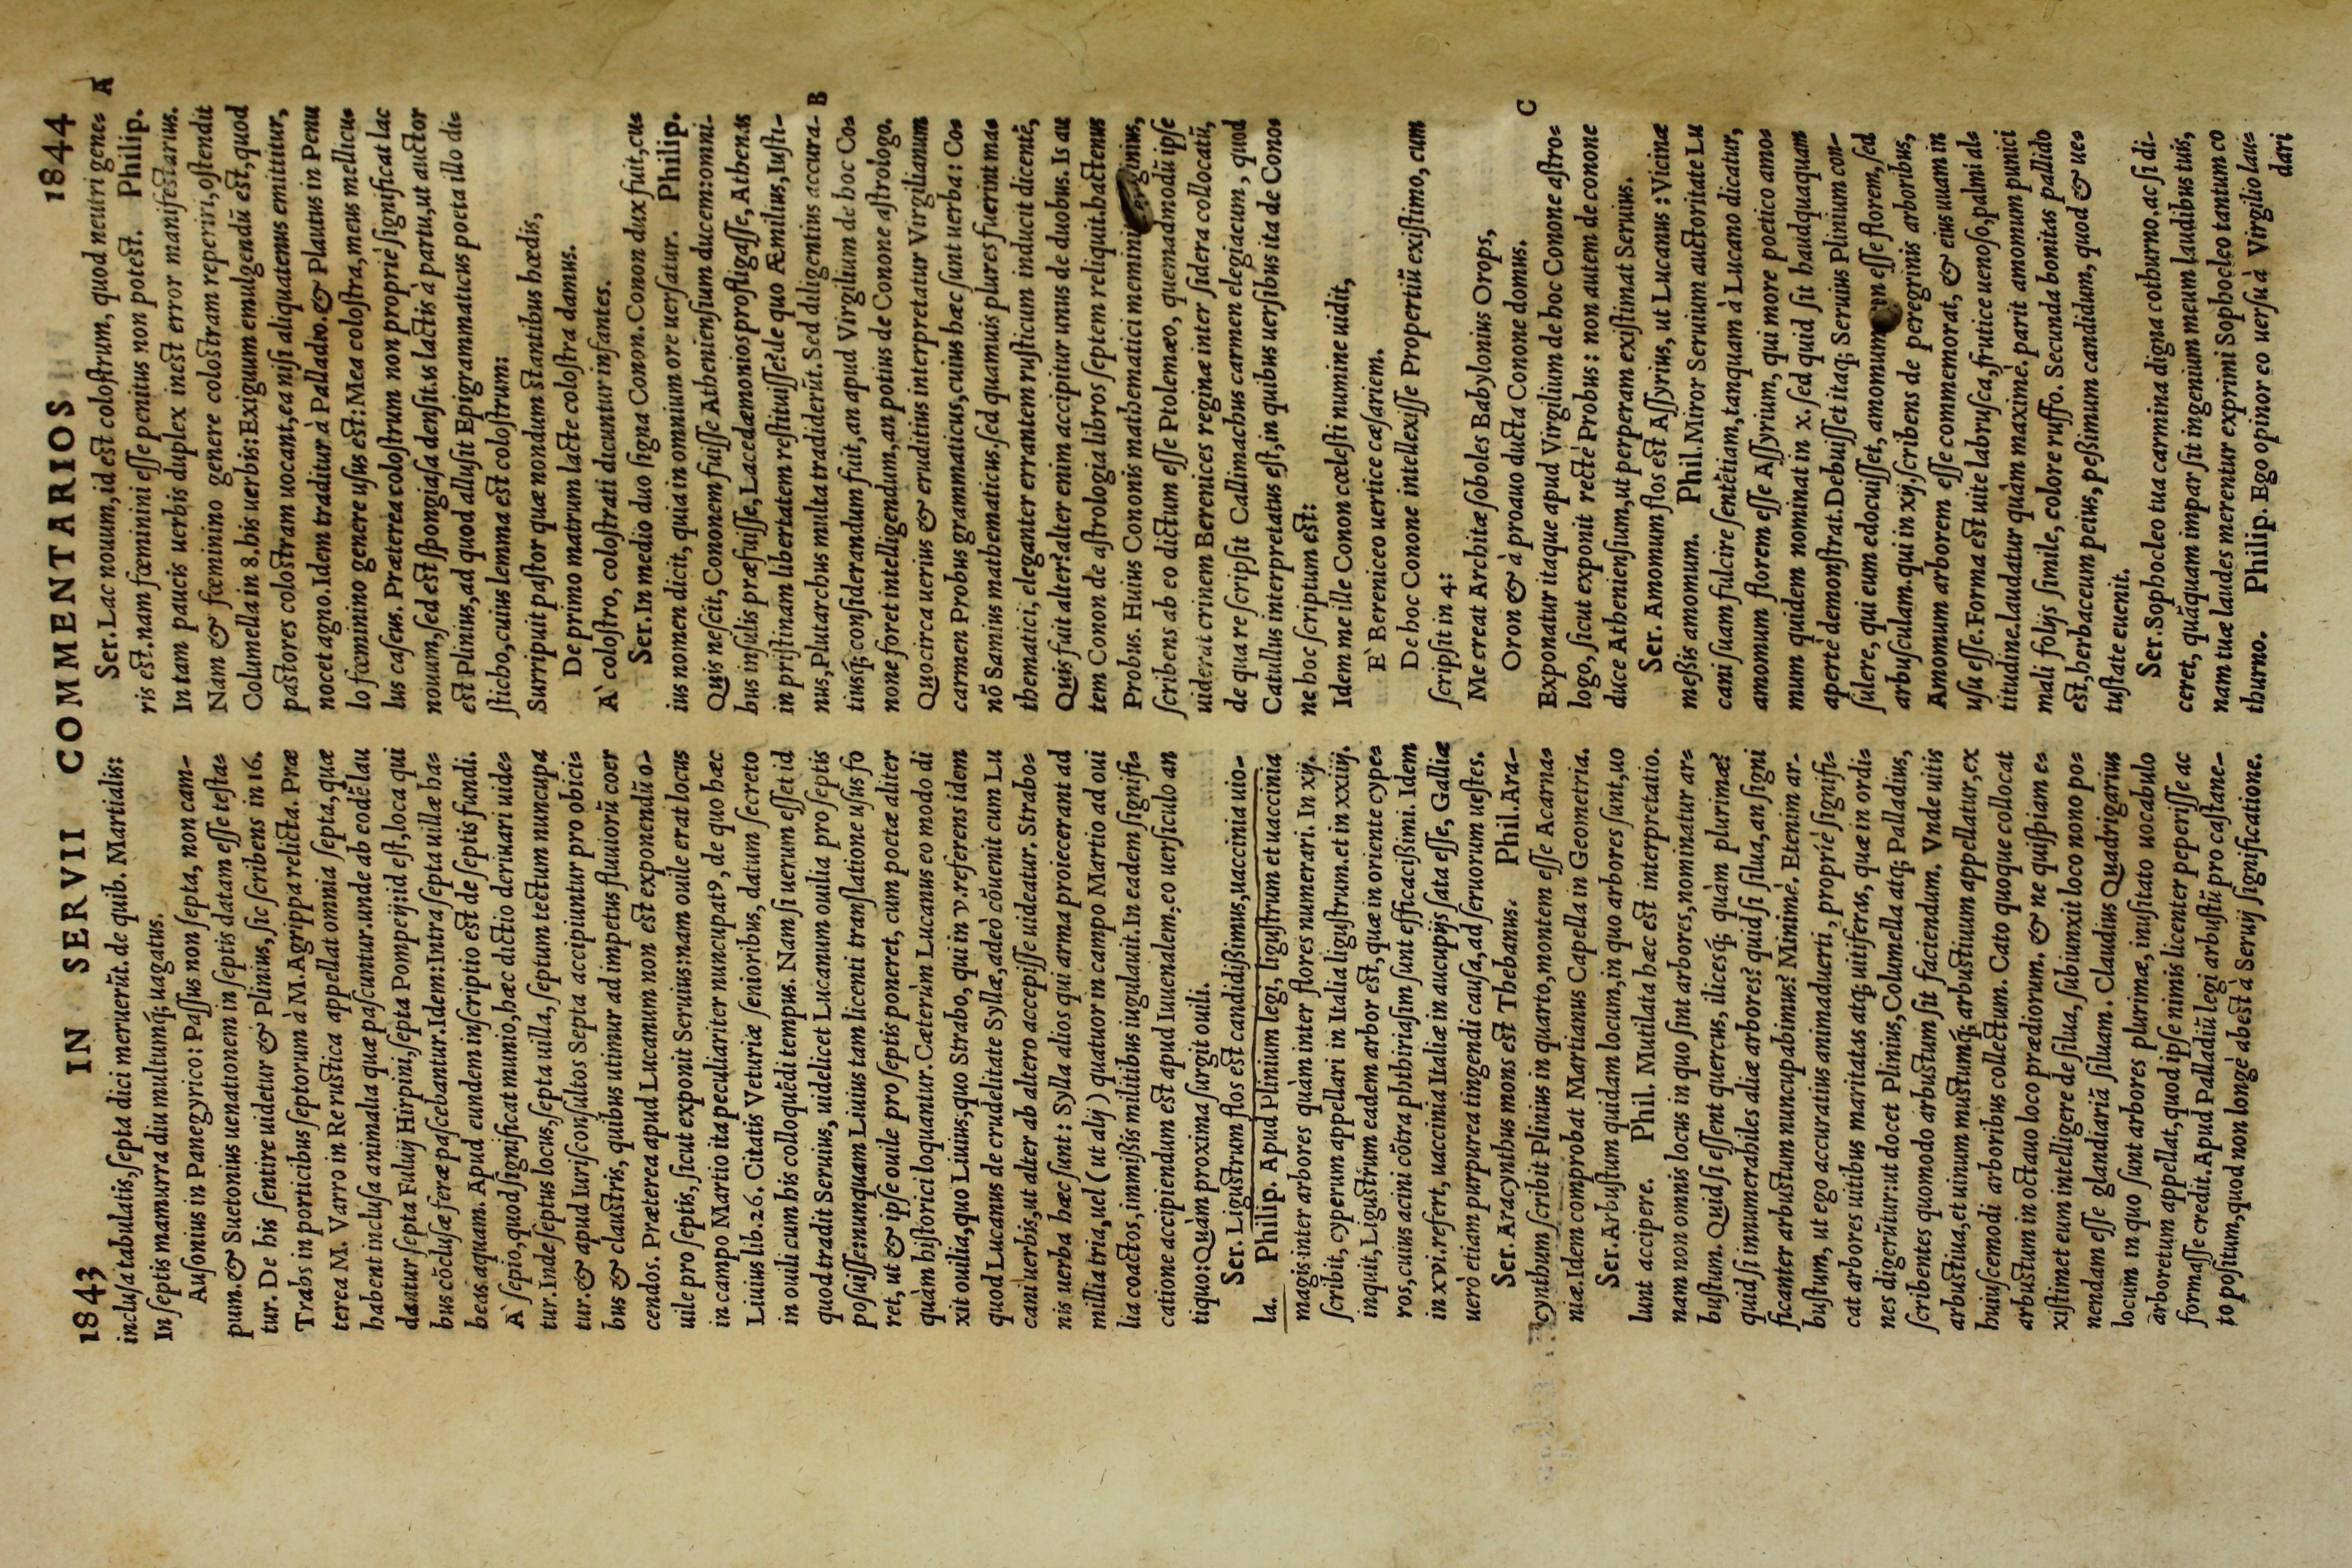 1843 IN SERVII COMMENTARIOS 1844
incluſa tabulatis, ſepta dici meruerũt. de quib. Martialis:
In ſeptis mamurra diu multumq́; uagatus.
Auſonius in Panegyrico: Paſſus non ſepta, non cam-
pum. & Suetonius uenationem in ſeptis datam eſſe teſta-
tur. De his ſentire uidetur & Plinius, ſic ſcribens in 16.
Trabs in porticibus ſeptorum à M. Agrippa relicta. Præ
terea M. Varro in Re ruſtica appellat omnia ſepta, quæ
habent incluſa animalia quæ paſcuntur. unde ab eodẽ lau
dantur ſepta Fuluij Hirpini, ſepta Pompeij: id eſt, loca qui
bus cõcluſæ feræ paſcebantur. Idem: Intra ſepta uillæ ha-
beas aquam. Apud eundem inſcriptio eſt de ſeptis fundi.
A` ſepio, quod ſignificat munio, hæc dictio deriuari uide-
tur. Inde ſeptus locus, ſepta uilla, ſeptum tectum nuncupa
tur. & apud Iuriſconſultos Septa accipiuntur pro obici-
bus & clauſtris, quibus utimur ad impetus fluuiorũ coer
cendos. Præterea apud Lucanum non eſt exponendũ o-
uile pro ſeptis, ſicut exponit Seruius: nam ouile erat locus
in campo Martio ita peculiariter nuncupatꝰ, de quo hæc
Liuius lib. 26. Citatis Veturiæ ſenioribus, datum ſecreto
in ouili cum his colloquẽdi tempus. Nam ſi uerum eſſet id
quod tradit Seruius, uidelicet Lucanum ouilia pro ſeptis
poſuiſſe: nunquam Liuius tam licenti tranſlatione uſus fo
ret, ut & ipſe ouile pro ſeptis poneret, cum poetæ aliter
quàm hiſtorici loquantur. Cæterùm Lucanus eo modo di
xit ouilia, quo Liuius, quo Strabo, qui in v. referens idem
quod Lucanus de crudelitate Syllæ, adeò cõuenit cum Lu
cani uerbis, ut alter ab altero accepiſſe uideatur. Strabo-
nis uerba hæc ſunt: Sylla alios qui arma proiecerant ad
millia tria, uel (ut alij) quatuor in campo Martio ad oui
lia coactos, immiſsis militibus iugulauit. In eadem ſignifi-
catione accipiendum eſt apud Iuuenalem. eo uerſiculo an
tiquo: Quàm proxima ſurgit ouili.
Ser. Liguſtrum flos eſt candidiſsimus, uaccinia uio-
la. Philip. Apud Plinium legi, liguſtrum et uaccinia
magis inter arbores quàm inter flores numerari. In xij.
ſcribit, cyperum appellari in Italia liguſtrum. et in xxiiij.
inquit, Liguſtrum eadem arbor eſt, quæ in oriente cype-
ros, cuius acini cõtra phthiriaſim ſunt efficaciſsimi. Idem
in xvi. refert, uaccinia Italiæ in aucupijs ſata eſſe, Galliæ
uerò etiam purpurea tingendi cauſa, ad ſeruorum ueſtes.
Ser. Aracynthus mons eſt Thebanus. Phil. Ara-
cynthum ſcribit Plinius in quarto, montem eſſe Acarna-
niæ. Idem comprobat Martianus Capella in Geometria.
Ser. Arbuſtum quidam locum, in quo arbores ſunt, uo
lunt accipere. Phil. Mutilata hæc eſt interpretatio.
nam non omnis locus in quo ſint arbores, nominatur ar-
buſtum. Quid ſi eſſent quercus, ilicesq́; quàm plurimæ?
quid ſi innumerabiles aliæ arbores? quid ſi ſilua, an ſigni
ficanter arbuſtum nuncupabimus? Minimè. Etenim ar-
buſtum, ut ego accuratius animaduerti, propriè ſignifi-
cat arbores uitibus maritatas atq; uitiferas, quæ in ordi-
nes digerũtur: ut docet Plinius, Columella atq; Palladius,
ſcribentes quomodo arbuſtum ſit faciendum. Vnde uitis
arbuſtiua, et uinum muſtumq́; arbuſtiuum appellatur, ex
huiuſcemodi arboribus collectum. Cato quoque collocat
arbuſtum in octauo loco prædiorum. & ne quiſpiam e-
xiſtimet eum intelligere de ſilua, ſubiunxit loco nono po-
nendam eſſe glandiariã ſiluam. Claudius Quadrigarius
locum in quo ſunt arbores plurimæ, inuſitato uocabulo
arboretum appellat, quod ipſe nimis licenter peperiſſe ac
formaſſe credit. Apud Palladiũ legi arbuſtũ pro caſtane-
to poſitum, quod non longè abeſt à Seruij ſignificatione.
Ser. Lac nouum, id eſt coloſtrum, quod neutri gene- A
ris eſt. nam fœminini eſſe penitus non poteſt. Philip.
In tam paucis uerbis duplex ineſt error manifeſtarius.
Nam & fœminino genere coloſtram reperiri, oſtendit
Columella in 8. his uerbis: Exiguum emulgendũ eſt, quod
paſtores coloſtram uocant, ea niſi aliquatenus emittitur,
nocet agno. Idem traditur à Palladio. & Plautus in Penu
lo fœminino genere uſus eſt: Mea coloſtra, meus mellicu-
lus caſeus. Præterea coloſtrum non propriè ſignificat lac
nouum, ſed eſt ſpongioſa denſitas lactis à partu, ut auctor
eſt Plinius, ad quod alluſit Epigrammaticus poeta illo di-
ſticho, cuius lemma eſt coloſtrum:
Surripuit paſtor quæ nondum ſtantibus hœdis,
De primo matrum lacte coloſtra damus.
A` coloſtro, coloſtrati dicuntur infantes.
Ser. In medio duo ſigna Conon. Conon dux fuit, cu-
ius nomen dicit, quia in omnium ore uerſatur. Philip.
Quis neſcit, Cononem fuiſſe Athenienſium ducem: omni-
bus inſulis præfuiſſe, Lacedæmonios profligaſſe, Athenas
in priſtinam libertatem reſtituiſſe? de quo Æmilius, Iuſti-
nus, Plutarchus multa tradiderũt. Sed diligentius accura- B
tiusq́; conſiderandum fuit, an apud Virgilium de hoc Co-
none foret intelligendum, an potius de Conone aſtrologo.
Quocirca uerius & eruditius interpretatur Virgilianum
carmen Probus grammaticus, cuius hæc ſunt uerba: Co-
nõ Samius mathematicus. ſed quamuis plures fuerint ma-
thematici, eleganter errantem ruſticum inducit dicentẽ,
Quis fuit alter? alter enim accipitur unus de duobus. Is au
tem Conon de aſtrologia libros ſeptem reliquit. hactenus
Probus. Huius Cononis mathematici
ſcribens ab eo dictum eſſe Ptolemæo, quemadmodũ ipſe
uiderat crinem Berenices reginæ inter ſidera collocatũ,
de qua re ſcripſit Callimachus carmen elegiacum, quod
Catullus interpretatus eſt, in quibus uerſibus ita de Cono-
ne hoc ſcriptum eſt:
Idem me ille Conon cœleſti numine uidit,
E` Bereniceo uertice cæſariem.
De hoc Conone intellexiſſe Propertiũ exiſtimo, cum
ſcripſit in 4:
Me creat Architæ ſoboles Babylonius Orops,
Oron & à proauo ducta Conone domus. C
Exponatur itaque apud Virgilium de hoc Conone aſtro-
logo, ſicut exponit rectè Probus: non autem de conone
duce Athenienſium, ut perperam exiſtimat Seruius.
Ser. Amomum flos eſt Aſſyrius, ut Lucanus: Vicinæ
meſsis amomum. Phil. Miror Seruium auctoritate Lu
cani ſuam fulcire ſentẽtiam, tanquam à Lucano dicatur,
amomum florem eſſe Aſſyrium, qui more poetico amo-
mum quidem nominat in x. ſed quid ſit haudquaquam
apertè demonſtrat. Debuiſſet itaq; Seruius Plinium con-
ſulere, qui eum edocuiſſet, amomum non eſſe florem, ſed
arbuſculam. qui in xij. ſcribens de peregrinis arboribus,
Amomum arborem eſſe commemorat, & eius uuam in
uſu eſſe. Forma eſt uite labruſca, frutice uenoſo, palmi al-
titudine. laudatur quàm maximè. parit amomum punici
mali folijs ſimile, colore ruffo. Secunda bonitas pallido
eſt, herbaceum peius, peſsimum candidum, quod & ue-
tuſtate euenit.
Ser. Sophocleo tua carmina digna cothurno. ac ſi di-
ceret, quãquam impar ſit ingenium meum laudibus tuis,
nam tuæ laudes merentur exprimi Sophocleo tantum co
thurno. Philip. Ego opinor eo uerſu à Virgilio lau-
dari